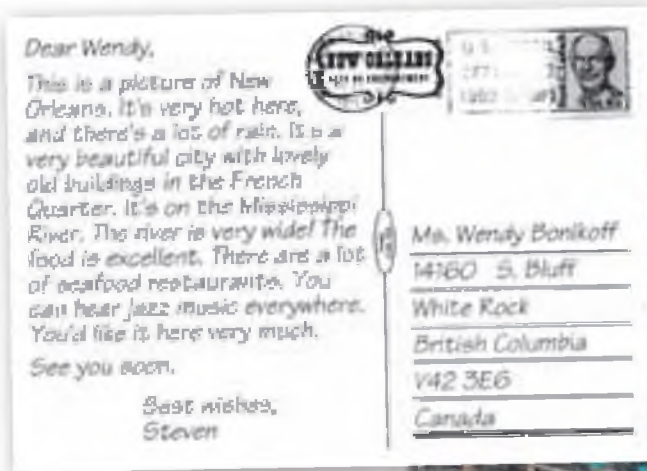 Dear Wendy,
This is a picture of New
Orleans. It's very hot here,
and there's a lot of rain. It's a
very beautiful city with lovely
old buildings in the French
Quarter. It's on the Mississippi
River. The river is very wide! The
food is excellent. There are a lot
of seafood restaurants. You
can hear jazz music everywhere.
You'd like it here very much.
See you soon.
Best wishes,
Steven
NEW ORLEANS
Ms. Wendy Bonikoff
14160 S. Bluff
White Rock
British Columbia
V42 3E6
Canada